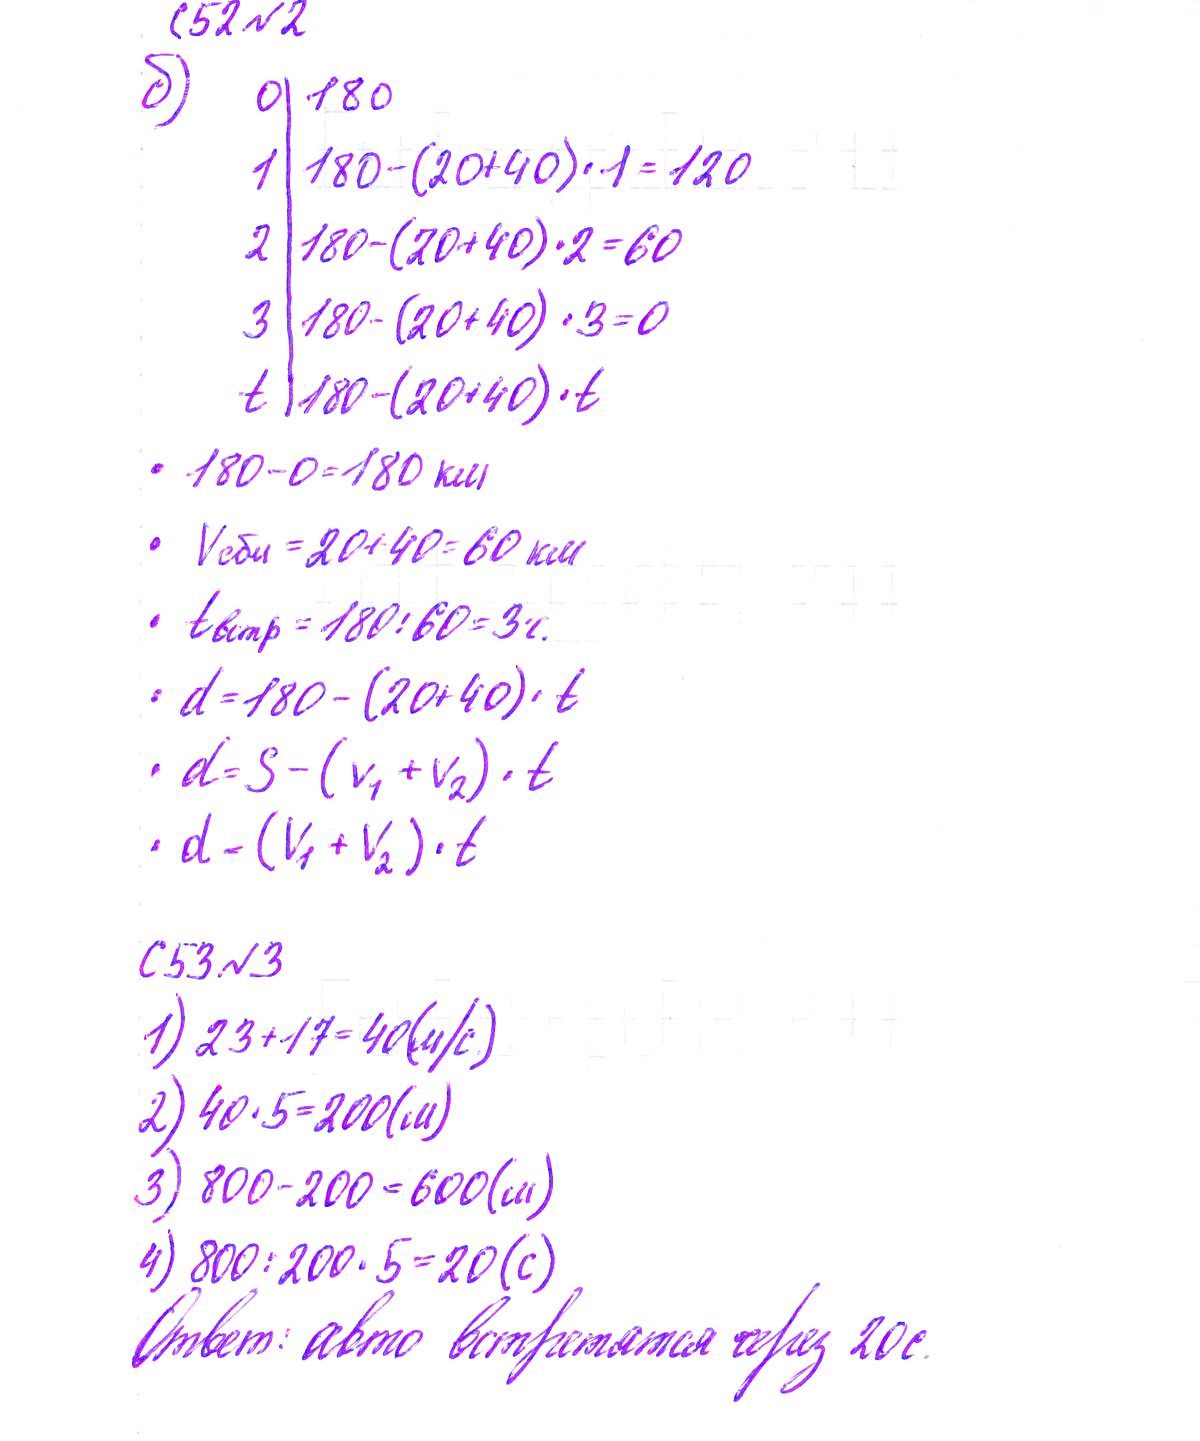 С52№2
б) 0 | 180
1 | 180-(20+40)·1=120
2 | 180-(20+40)·2=60
3 | 180-(20+40)·3=0
t | 180-(20+40)·t
· 180-0=180 км
· Vсбл = 20+40=60 км
· tвстр = 180:60=3ч.
· d=180-(20+40)·t
· d=S-(v₁+v₂)·t
· d-(V₁+V₂)·t
С53№3
1) 23+17=40(м/с)
2) 40·5=200(м)
3) 800-200=600(м)
4) 800:200·5=20(с)
Ответ: авто встретятся через 20с.